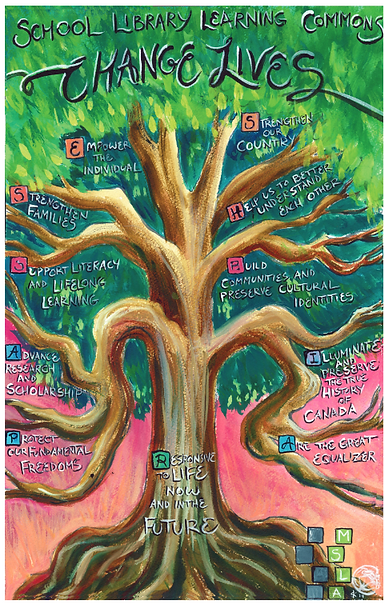 SCHOOL LIBRARY LEARNING COMMONS
CHANGE LIVES
EMPOWER
THE
INDIVIDUAL
STRENGTHEN
OUR
COUNTRY
STRENGTHEN
FAMILIES
HELP US TO BETTER
UNDERSTAND
EACH OTHER
SUPPORT LITERACY
AND LIFELONG
LEARNING
BUILD
COMMUNITIES AND
PRESERVE CULTURAL
IDENTITIES
ADVANCE
RESEARCH
AND
SCHOLARSHIP
ILLUMINATE
AND
PRESERVE
THE TRUE
HISTORY
OF
CANADA
PROTECT
OUR FUNDAMENTAL
FREEDOMS
ARE THE GREAT
EQUALIZER
RESPONSIVE
TO LIFE
NOW
AND IN THE
FUTURE
M
S
L
A